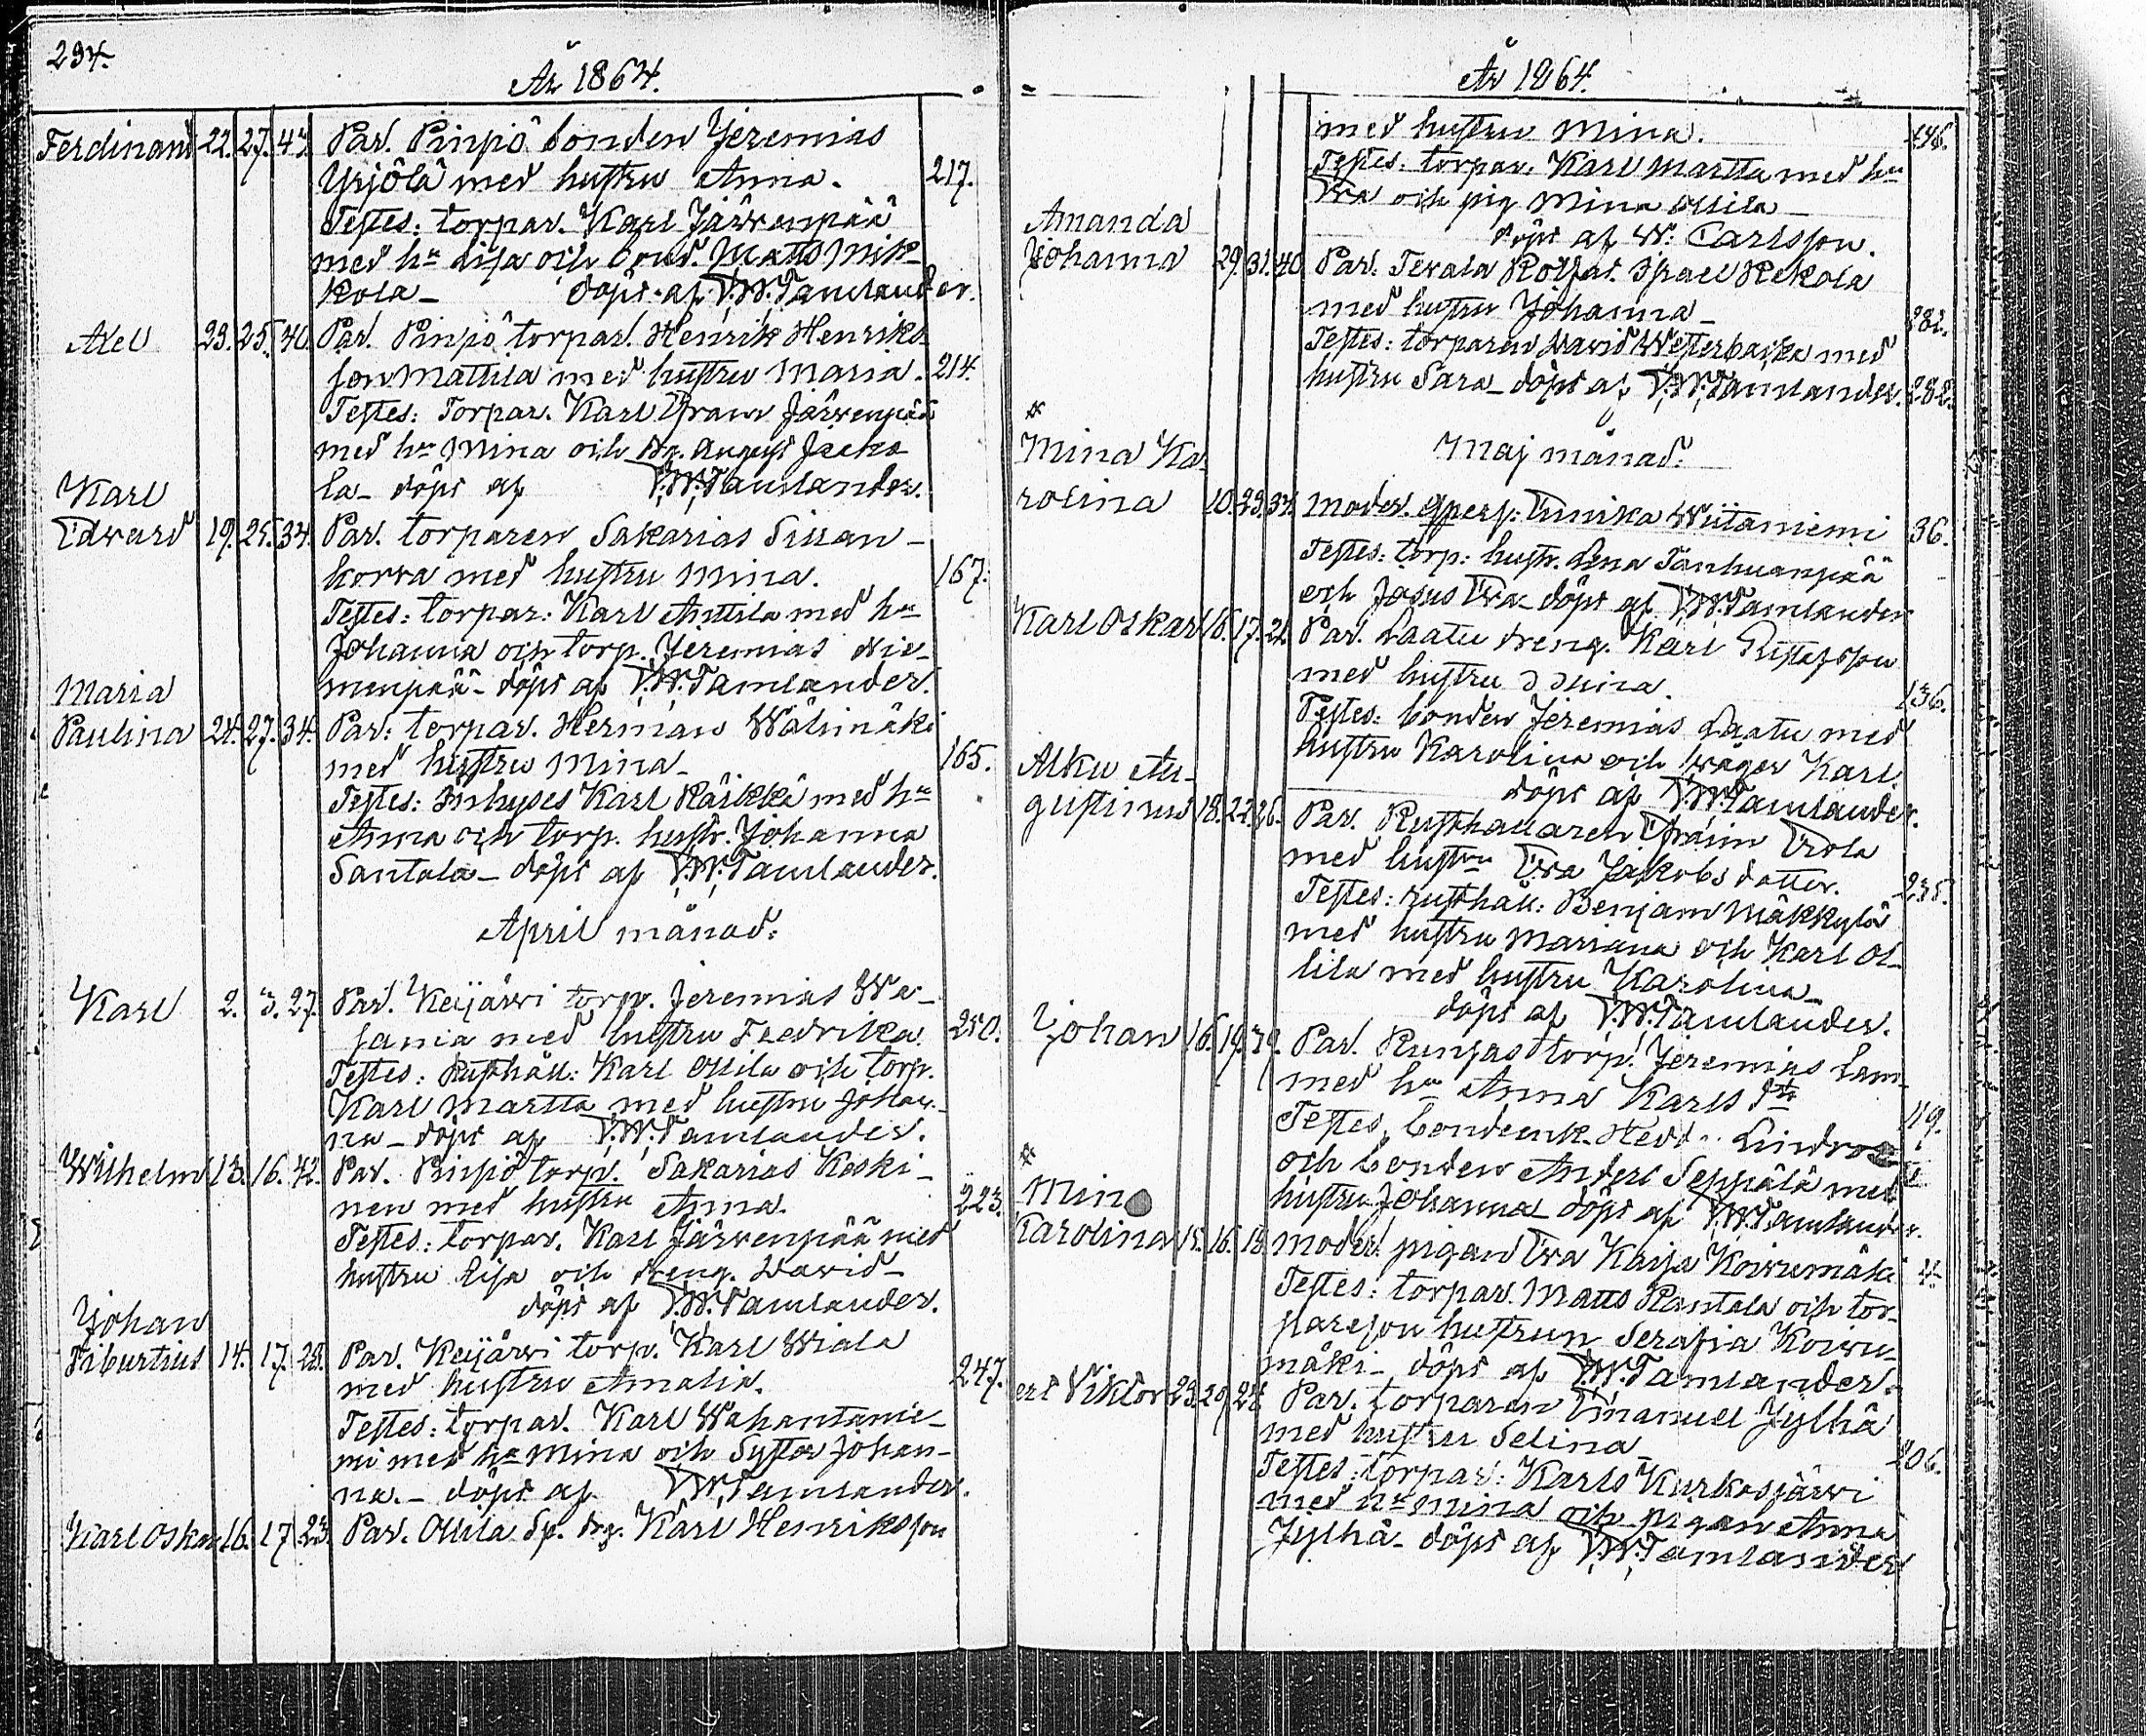 294.
År 1864.
Ferdinand 22. 27. 44. Par. Pinpiö bonden Jeremias
Yrjölä med hustru Anna. 217.
Testes: torpar. Karl Järvenpää
med hu Lisa och bond. Matts Mik-
kola - döpt af F.W. Tamlander.
Axel 23. 25. 40. Par. Pinpiö torpar. Henrik Henriks
son Mattila med hustru Maria. 214.
Testes: Torpar. Karl Frans Järvenpää
med hu Mina och dr. August Jacko
la - döpt af F.W. Tamlander.
Karl
Edvard 19. 25. 34. Par. torparen Sakarias Sillan-
korva med hustru Mina. 167.
Testes: torpar: Karl Anttila med hu
Johanna och torp. Jeremias Nie-
menpää - döpt af F.W. Tamlander.
Maria
Paulina 24. 27. 34. Par: torpar. Herman Wälimäki
med hustru Mina - 165.
Testes: Inhyses Karl Räikkä med hu
Anna och torp. hustr. Johanna
Santala - döpt af F.W. Tamlander.
April månad:
Karl 2. 3. 27. Par. Keijärvi torp. Jeremias Wa-
jania med hustru Fredrika 250.
Testes: Rusthåll: Karl Ollila och torp.
Karl Martta med hustru Johan-
na - döpt af F.W. Tamlander.
Wilhelm 13. 16. 42. Par. Pinpiö torp. Sakarias Koski-
nen med hustru Anna. 223.
Testes: torpar. Karl Järvenpää med
hustru Lisa och dreng. David -
döpt af F.W. Tamlander.
Johan
Tiburtius 14. 17. 28. Par. Keijärvi torp. Karl Wiala
med hustru Amalia. 247.
Testes: torpar. Karl Wahantanie-
mi med hu Mina och Syster Johan-
na. - döpt af F.W. Tamlander.
Karl Oskar 16. 17. 23. Par. Ollila Sp. dr. Karl Henriksson
År 1864.
med hustru Mina. 246.
Testes: torpar. Karl Martta med hu
Eva och pig Mina Ollila -
döpt af W. Carlsson.
Amanda
Johanna 29. 31. 40. Par. Tevala Rotfat. Isael Kekola
med hustru Johanna - 282.
Testes: torparen David Westerbacka med
hustru Sara - döpt af F.W. Tamlander. 282.
*
Maj månad:
Mina Ka-
rolina 10. 23. 34. Moder. Qpers: Ulrika Wiitaniemi 36.
Testes: torp: hustr. Lena Tanhuanpää
och Josus Eva - döpt af F.W. Tamlander
Karl Oskar 16. 17. 22. Par. Laatu dreng. Karl Gustafsson
med hustru Mina. 136.
Testes: bonden Jeremias Laatu med
hustru Karolina och svåger Karl
döpt af F.W. Tamlander.
Alku Au-
gustinus 18. 22. 26. Par. Rusthållaren Efraim Erola
med hustru Eva Jakobs dotter. 235.
Testes: rusthåll: Benjam Mäkkylä
med hustru Mariana och Karl Ol-
lila med hustru Karolina -
döpt af F.W. Tamlander.
Johan 16. 19. 39. Par. Runjas torp. Jeremias Lam-
med hu Anna Karls dtr 119.
Testes, bondenk. Hedd.
och bonden Anders Seppälä med
hustru Johanna - döpt af F.W. Tamlander.
*
Mina
Karolina 15. 16. 18. moder. pigan Eva Kaisa Koivumäki 4.
Testes: torpar. Matts Rantala och tor-
pareson hustrun Serafia Koivu-
mäki - döpt af F.W. Tamlander.
Viktor 23. 29. 24. Par. torparen Emanuel Jylhä
med hustru Selina - 206.
Testes: torpar: Karls Kurkosjärvi
med hu Mina och pigan Anna
Jylhä - döpt af F.W. Tamlander